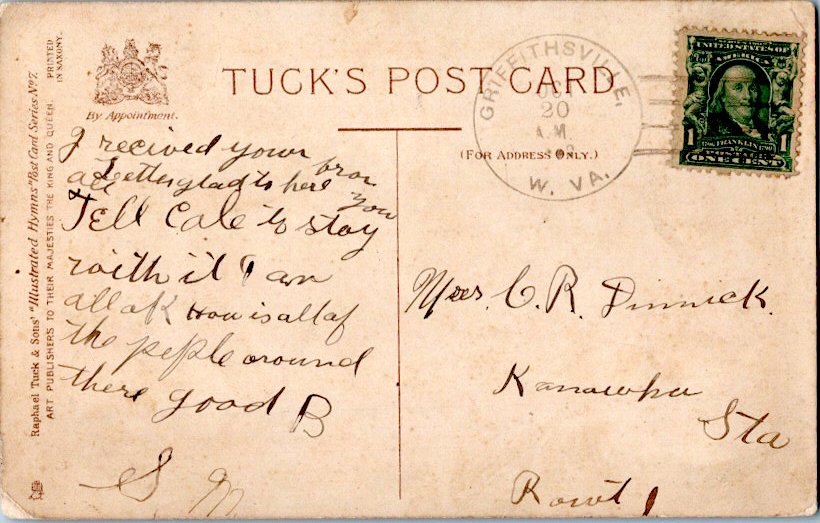 Raphael Tuck & Sons' "Illustrated Hymns" Post Card Series No 7.
ART PUBLISHERS TO THEIR MAJESTIES THE KING AND QUEEN.
PRINTED
IN SAXONY.
By Appointment.
TUCK'S POST CARD
(FOR ADDRESS ONLY.)
GRIFFITHSVILLE,
20
A.M.
W. VA.
UNITED STATES OF
AMERICA
1706 FRANKLIN 1790
POSTAGE
1 ONE CENT 1
I recived your
all Letters glad to here from
you
Tell Cale to stay
with it I am
all ok How is all of
the peple around
there good B
S. M
Mrs. C. R. Dinnick.
Kanawha
Sta
Rout 1